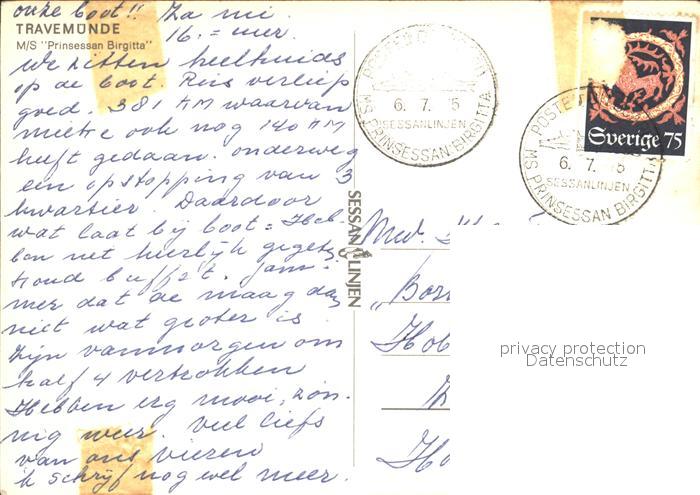 onze boot!! Za mi.
TRAVEMÜNDE
16.= uur.
M/S "Prinsessan Birgitta"
We zitten heelhuids
op de boot. Reis verliep
goed. 381 KM waarvan
mietre ook nog 140 KM
heeft gedaan. onderweg
een opstopping van 3
kwartier. Daardoor
wat laat bij boot = Heb-
ben net heerlijk gegeten
koud buffet. Jam-
mer dat de maag dan
niet wat groter is
Zijn vanmorgen om
half 4 vertrokken
Hebben erg mooi, zon-
nig weer. Veel liefs
van ons vieren
ik schrijf nog wel meer.
SESSAN LINJEN
POSTED ON BOARD
6. 7. 75
SESSANLINJEN
MS PRINSESSAN BIRGITTA
Sverige 75
POSTED
6. 7. 75
SESSANLINJEN
MS PRINSESSAN BIRGITTA
Mw.
"Bor
Hob
Ho
privacy protection
Datenschutz